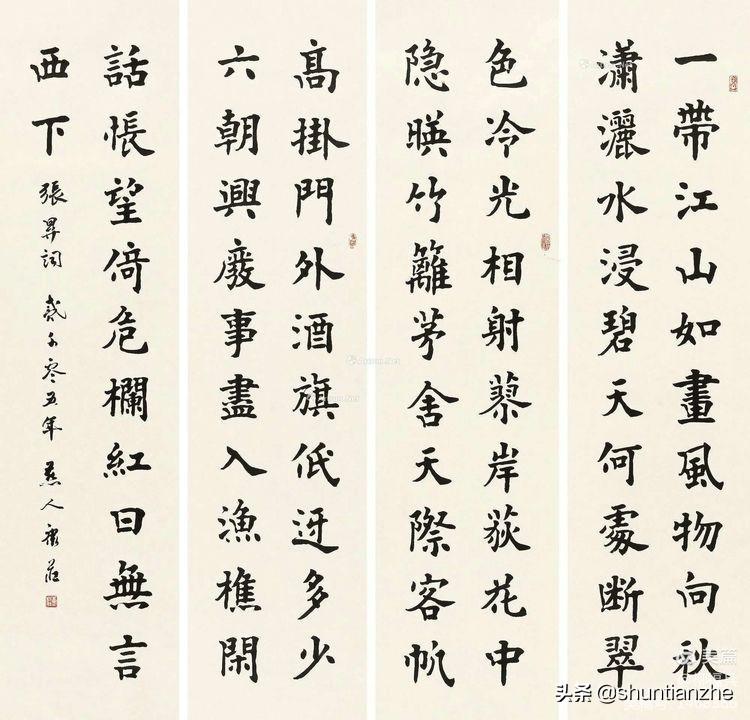 一帶江山如畫風物向秋
瀟灑水浸碧天何處断翠
色冷光相射蓼岸荻花中
隐暎竹籬茅舍天際客帆
髙掛門外酒旗低迓多少
六朝興廢事盡入漁樵閑
話悵望倚危欄紅日無言
西下
張昇詞 貳千零五年 燕人康莊
美篇
头条 @shuntianzhe